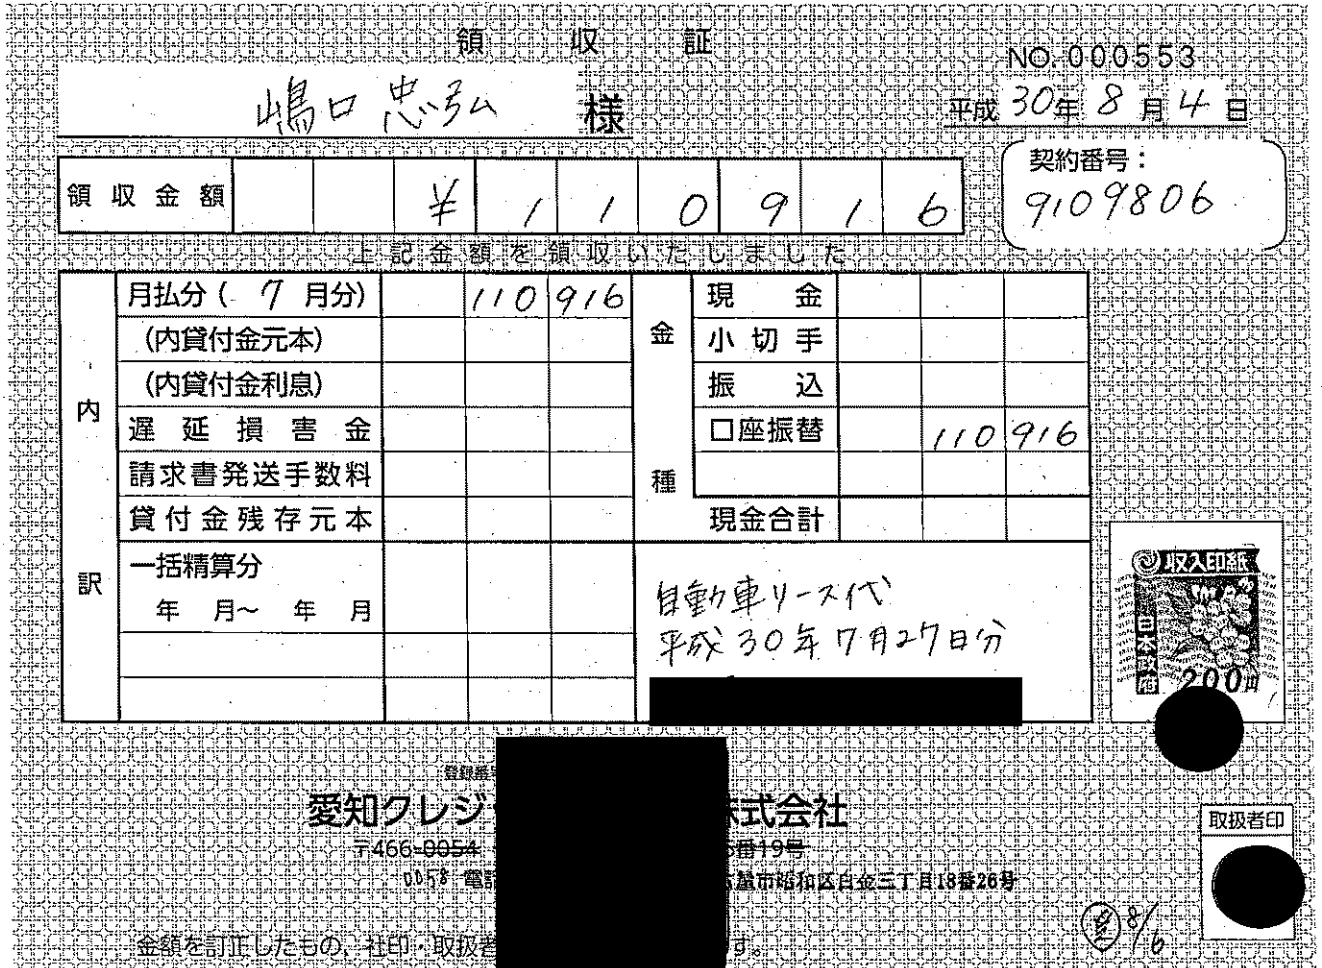 領収証
NO.000553
嶋口忠弘 様
平成30年8月4日
契約番号：
9109806
領収金額 ¥110916
上記金額を領収いたしました
内訳
月払分（7月分） 110916
（内貸付金元本）
（内貸付金利息）
遅延損害金
請求書発送手数料
貸付金残存元本
一括精算分
年 月～ 年 月
金種
現金
小切手
振込
口座振替 110916
現金合計
自動車リース代
平成30年7月27日分
収入印紙
日本政府
200円
登録番
愛知クレジ 株式会社
〒466-0054 番19号
0058 電 屋市昭和区白金三丁目18番26号
取扱者印
8/6
金額を訂正したもの、社印・取扱者 す。